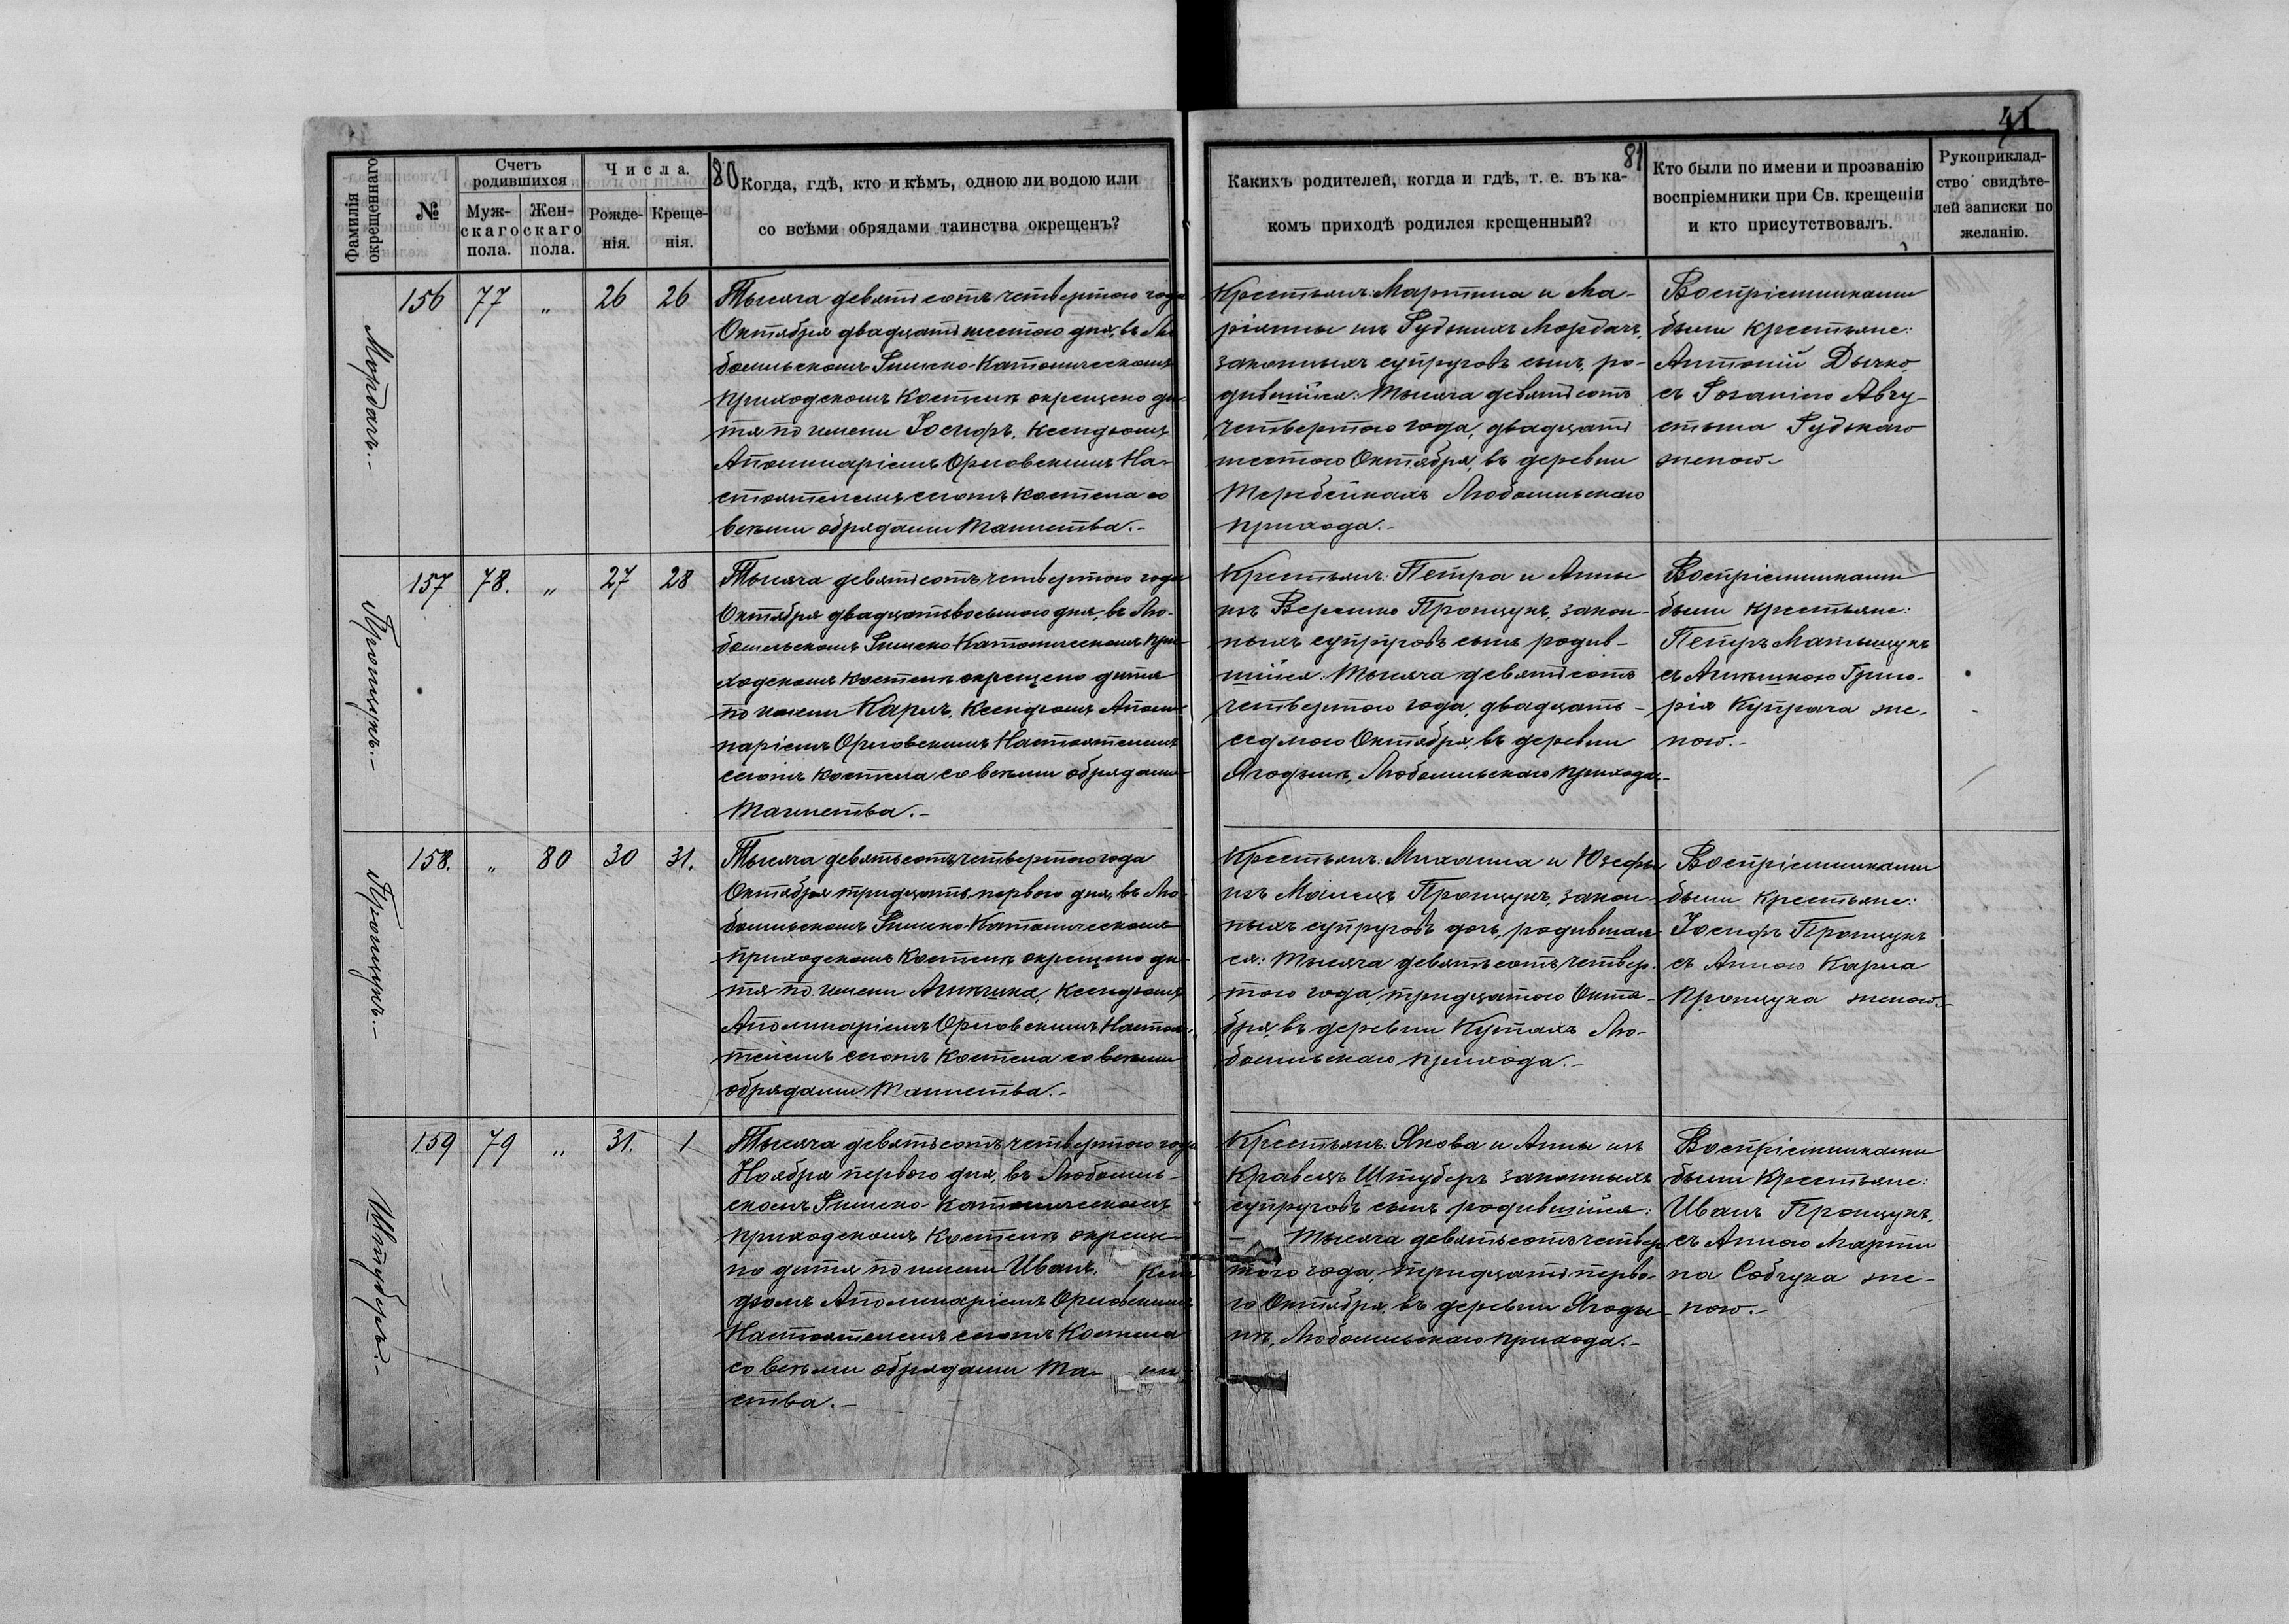 41
80
81
Фамилія
окрещеннаго
№
Счетъ
родившихся
Муж-
скаго
пола.
Жен-
скаго
пола.
Числа.
Рожде-
нія.
Креще-
нія.
Когда, гдѣ, кто и кѣмъ, одною ли водою или
со всѣми обрядами таинства окрещенъ?
Какихъ родителей, когда и гдѣ, т. е. въ ка-
комъ приходѣ родился крещенный?
Кто были по имени и прозванію
воспріемники при Св. крещеніи
и кто присутствовалъ.
Рукоприклад-
ство свидѣте-
лей записки по
желанію.
Мордачъ.-
156 77 „ 26 26
Тысяча девятьсотъ четвертого года
Октября двадцать шестого дня, въ Лю-
бомльскомъ Римско-Католическомъ
приходскомъ Костелѣ окрещено ди-
тя по имени Іосифъ, Ксендзомъ
Аполинаріемъ Орловскимъ На-
стоятелемъ сегожъ Костела со
всѣми обрядами Таинства.-
Крестьянъ: Мартина и Ма-
ріянны изъ Рудкихъ Мордачъ,
законныхъ супруговъ сынъ, ро-
дившійся: Тысяча девятьсотъ
четвертого года, двадцать
шестого Октября, въ деревни
Теребейкахъ Любомльскаго
прихода.-
Воспріемниками
были крестьяне:
Антоній Дычко,
съ Розаліею Авгу-
стына Рудкаго
женою.-
Процукъ.-
157 78. „ 27 28
Тысяча девятьсотъ четвертого года
Октября двадцать восьмого дня, въ Лю-
бомльскомъ Римско-Католическомъ при-
ходскомъ Костелѣ окрещено дитя
по имени Карлъ, Ксендзомъ Аполи-
наріемъ Орловскимъ Настоятелемъ
сегожъ Костела со всѣми обрядами
Таинства.-
Крестьянъ: Петра и Анны
изъ Процукъ, закон-
ныхъ супруговъ сынъ родив-
шійся: Тысяча девятьсотъ
четвертого года, двадцать-
седмого Октября, въ деревни
Ягодынѣ, Любомльскаго прихода.-
Воспріемниками
были крестьяне:
Петръ Матыщукъ
съ Агнѣшкою Григо-
рія Купрача же-
ною.-
Процукъ.-
158. „ 80 30 31.
Тысяча девятьсотъ четвертого года
Октября тридцать первого дня, въ Лю-
бомльскомъ Римско-Католическомъ
приходскомъ Костелѣ окрещено ди-
тя по имени Агнѣшка, Ксендзомъ
Аполинаріемъ Орловскимъ Настоя-
телемъ сегожъ Костела со всѣми
обрядами Таинства.-
Крестьянъ: Михаила и Юзефы
изъ Малецъ Процукъ, закон-
ныхъ супруговъ дочь, родившая-
ся: Тысяча девятьсотъ четвер-
того года, тридцатого Октя-
бря, въ деревни Кутахъ Лю-
бомльскаго прихода.-
Воспріемниками
были крестьяне:
Іосифъ Процукъ
съ Анною Карла
Процука женою.-
Штуберъ.-
159 79 „ 31. 1
Тысяча девятьсотъ четвертого года
Ноября первого дня, въ Любомль-
скомъ Римско-Католическомъ
приходскомъ Костелѣ окреще-
но дитя по имени Иванъ, Ксен-
дзомъ Аполинаріемъ Орловскимъ
Настоятелемъ сегожъ Костела
со всѣми обрядами Та- ин-
ства.-
Крестьянъ: Якова и Анны изъ
Кравецъ Штуберъ законныхъ
супруговъ сынъ родившійся:
- Тысяча девятьсотъ четвер-
того года, тридцать перво-
го Октября, въ деревни Ягоды-
нѣ, Любомльскаго прихода.-
Воспріемниками
были Крестьяне:
Иванъ Процукъ,
съ Анною Марти-
на Собчука же-
ною.-